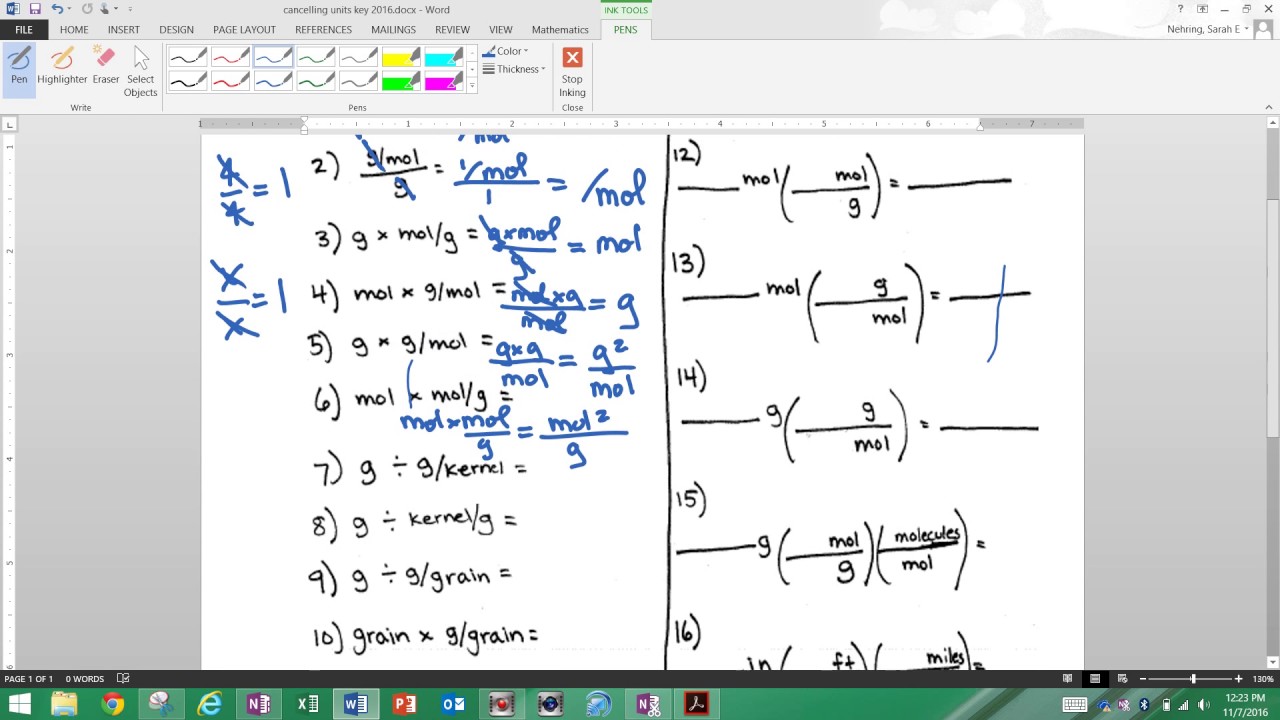 cancelling units key 2016.docx - Word
INK TOOLS
FILE HOME INSERT DESIGN PAGE LAYOUT REFERENCES MAILINGS REVIEW VIEW Mathematics PENS
Nehring, Sarah E
Pen Highlighter Eraser Select Objects
Color
Thickness
Stop Inking
Write Pens Close
1 1 2 3 4 5 6 7
2) g/mol / g = 1/mol / 1 = /mol
x/x = 1
3) g × mol/g = g×mol / g = mol
x/x = 1
4) mol × g/mol = mol×g / mol = g
5) g × g/mol = g×g / mol = g² / mol
6) mol × mol/g =
mol×mol / g = mol² / g
7) g ÷ g/kernel =
8) g ÷ kernel/g =
9) g ÷ g/grain =
10) grain × g/grain =
12)
____ mol ( mol / g ) = ____
13)
____ mol ( g / mol ) = ____
14)
____ g ( g / mol ) = ____
15)
____ g ( mol / g ) ( molecules / mol ) =
16)
in ( ft ) ( miles ) =
PAGE 1 OF 1 0 WORDS
130%
12:23 PM
11/7/2016